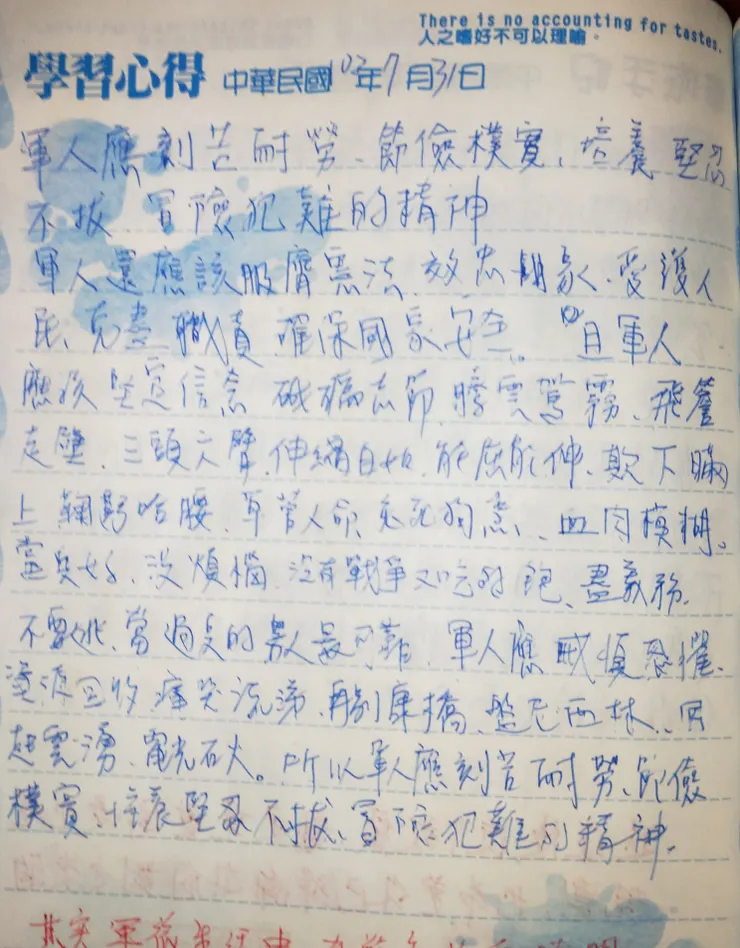 There is no accounting for tastes.
人之嗜好不可以理喻。
學習心得 中華民國103年7月31日
軍人應刻苦耐勞、節儉樸實、培養堅忍
不拔、冒險犯難的精神
軍人還應該服膺憲法、效忠國家、愛護人
民、克盡職責、確保國家安全。而且軍人
應該堅定信念、砥礪志節、騰雲駕霧、飛簷
走壁、三頭六臂、伸縮自如、能屈能伸、欺下瞞
上、鞠躬哈腰、草菅人命、兔死狗烹、血肉模糊。
當兵好、沒煩惱、沒有戰爭又吃得飽、盡義務、
不要逃、當過兵的男人最可靠、軍人應戒慎恐懼、
資源回收、痛哭流涕、再別康橋、盤尼西林、風
起雲湧、電光石火。所以軍人應刻苦耐勞、節儉
樸實、培養堅忍不拔、冒險犯難的精神。
其實軍旅生活中